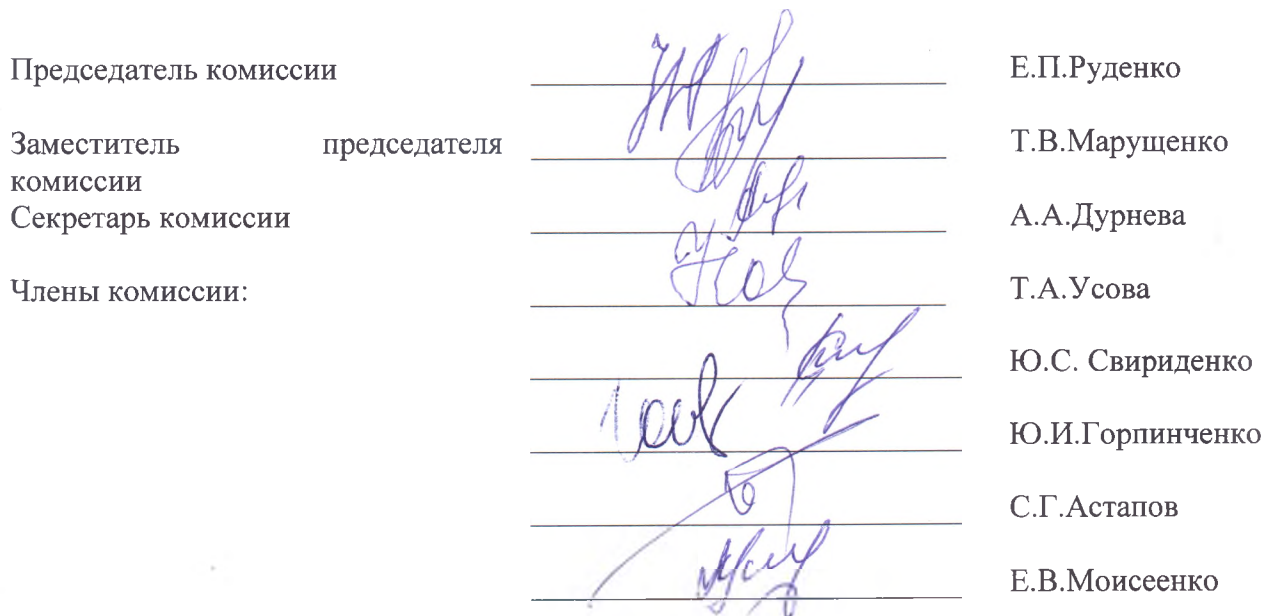 Председатель комиссии Е.П.Руденко
Заместитель председателя Т.В.Марущенко
комиссии
Секретарь комиссии А.А.Дурнева
Члены комиссии: Т.А.Усова
Ю.С. Свириденко
Ю.И.Горпинченко
С.Г.Астапов
Е.В.Моисеенко